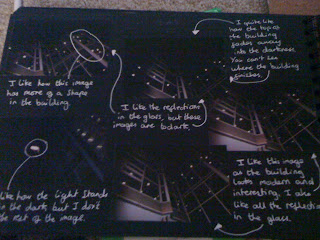 I quite like
how the top of
the building
fades away
into the darkness.
You can't see
where the building
finishes.
I like how this image
has more of a shape
in the building.
I like the reflections
in the glass, but these
images are to dark.
I like this image
as the building
looks modern and
interesting. I also
like all the reflection
in the glass.
like how the light stands
in the dark, but I don't
the rest of the image.